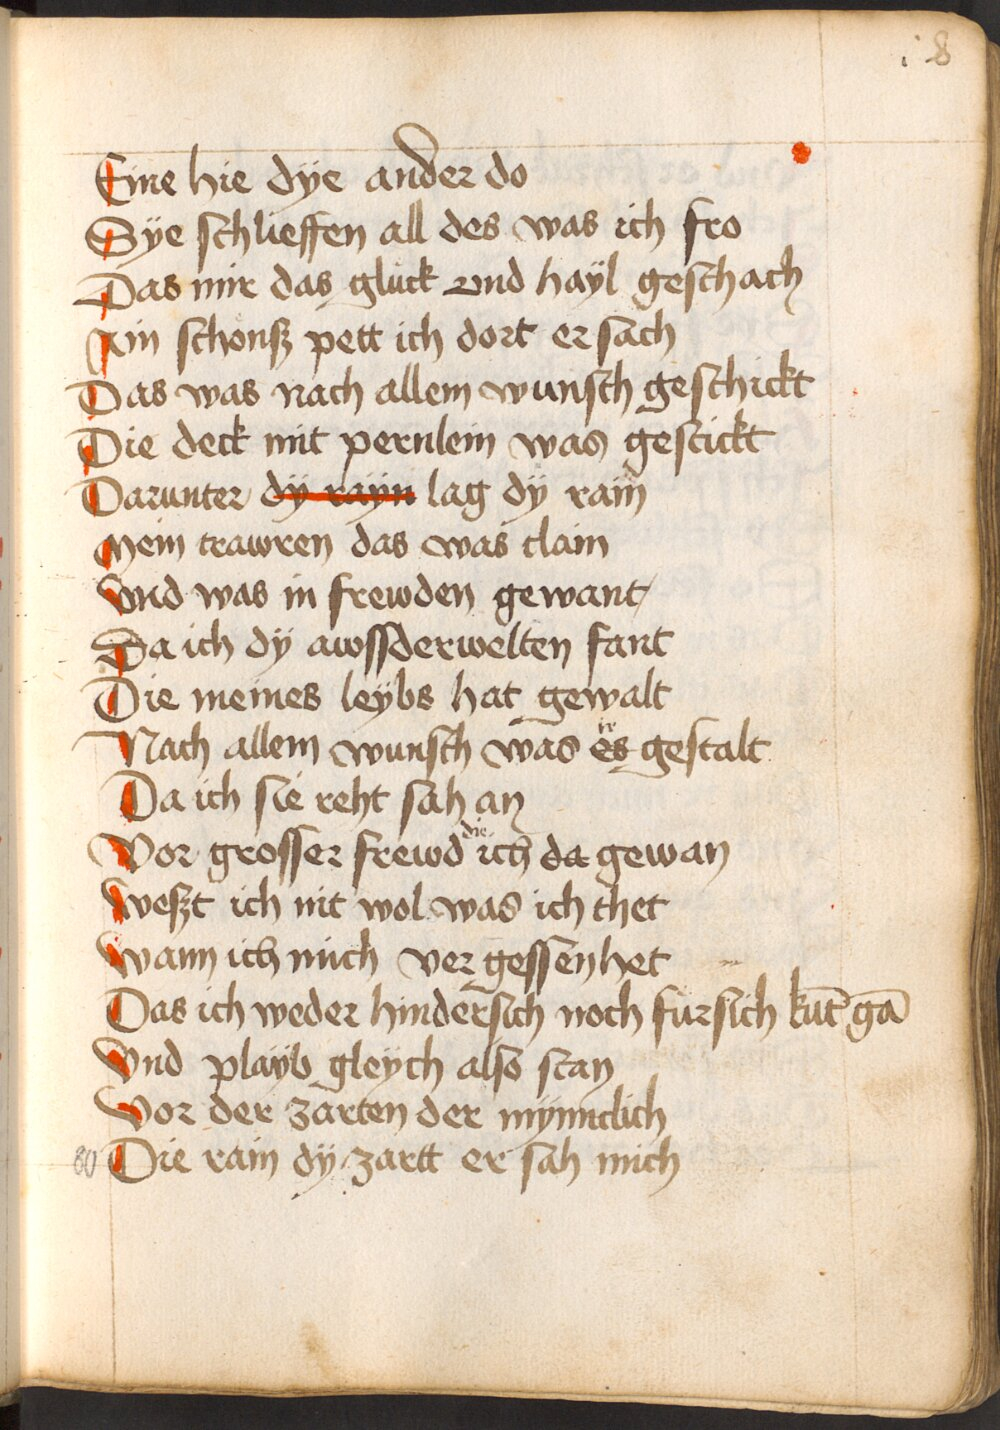 i8
Eine hie dÿe ander do
Sÿe schlieffen all des was ich fro
Das mir das gluck vnd haÿl geschach
Ain schonß pett ich dort ersach
Das was nach allem wunsch geschickt
Die deck mit pernlein was gestickt
Darunter dÿ raÿn lag dÿ rain
Mein trawren das was clain
Vnd was in frewden gewant
Da ich dÿ awssderwelten fant
Die meines leÿbs hat gewalt
Nach allem wunsch was es gestalt
Da ich sie reht sah an
die
Vor grosser frewd ich da gewan
Weßt ich nit wol was ich thet
Wann ich mich ver gessen het
Das ich weder hindersich noch fursich kūt gā
Vnd plaÿb gleÿch also stan
Vor der zarten der mÿnnclich
80 Die rain dÿ zartt er sah mich